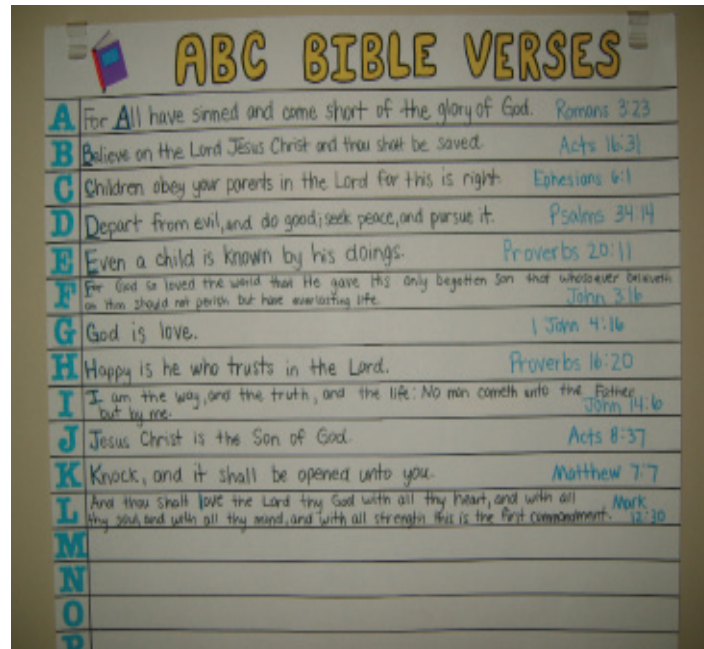 ABC BIBLE VERSES
A For All have sinned and come short of the glory of God. Romans 3:23
B Believe on the Lord Jesus Christ and thou shalt be saved. Acts 16:31
C Children obey your parents in the Lord for this is right. Ephesians 6:1
D Depart from evil, and do good; seek peace, and pursue it. Psalms 34:14
E Even a child is known by his doings. Proverbs 20:11
F For God so loved the world that He gave His only begotten Son that whosoever believeth
on Him should not perish but have everlasting life. John 3:16
G God is love. 1 John 4:16
H Happy is he who trusts in the Lord. Proverbs 16:20
I I am the way, and the truth, and the life: No man cometh unto the Father
but by me. John 14:6
J Jesus Christ is the Son of God. Acts 8:37
K Knock, and it shall be opened unto you. Matthew 7:7
L And thou shalt love the Lord thy God with all thy heart, and with all
thy soul, and with all thy mind, and with all strength this is the first commandment. Mark 12:30
M
N
O
P